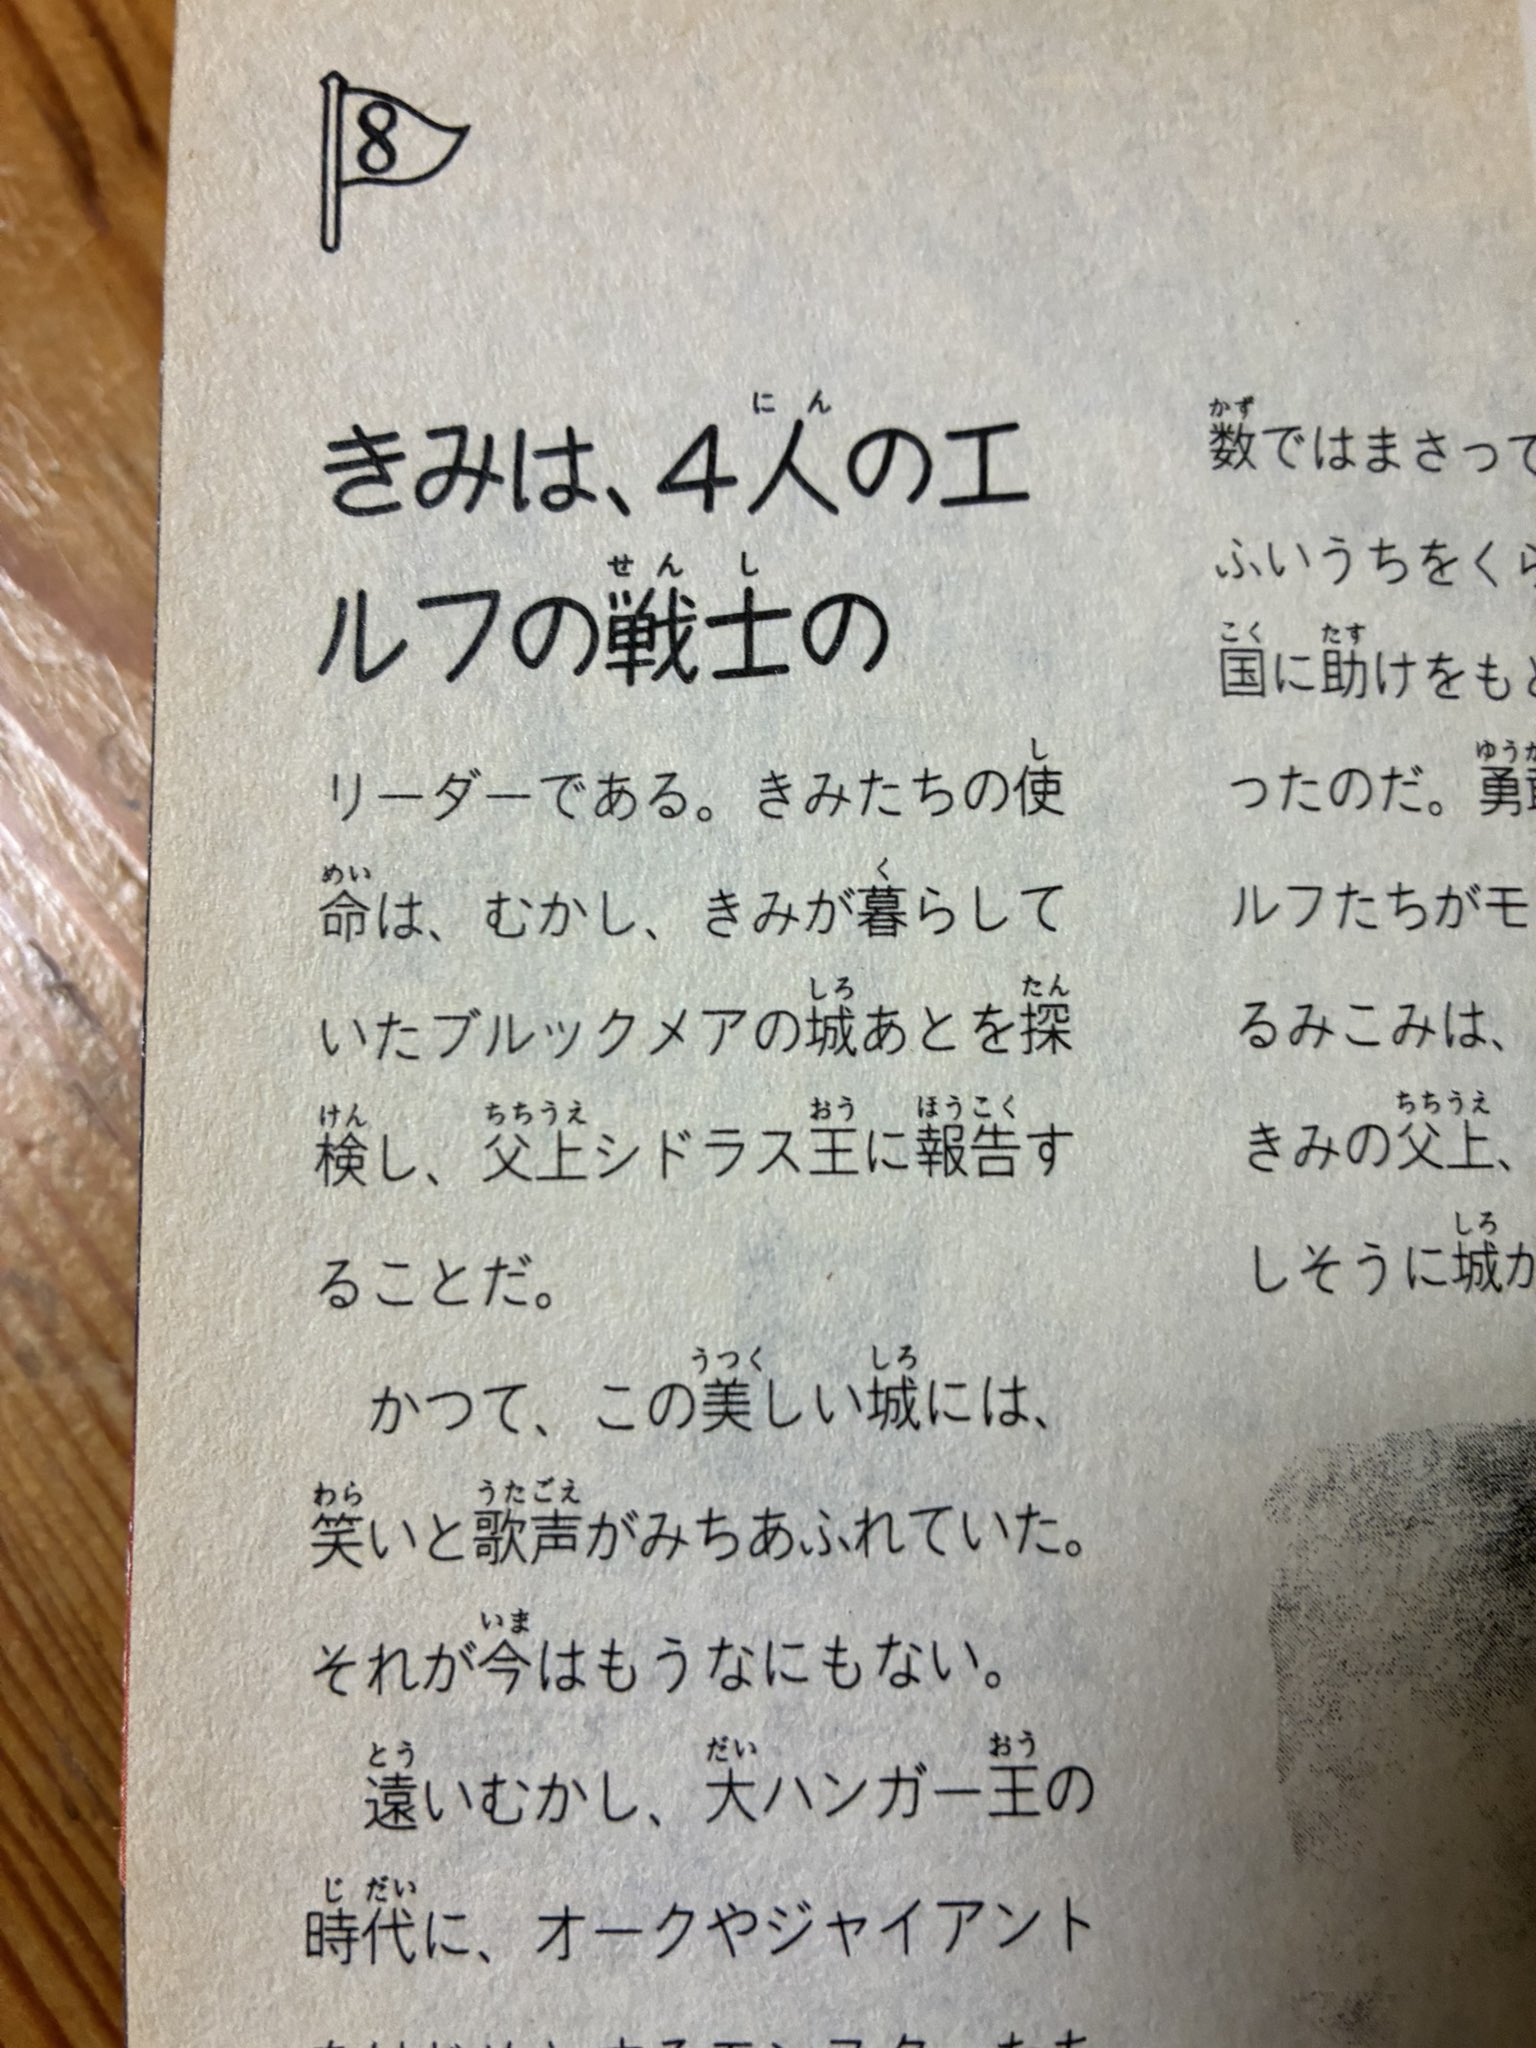 8
きみは、4人のエ
ルフの戦士の
リーダーである。きみたちの使
命は、むかし、きみが暮らして
いたブルックメアの城あとを探
検し、父上シドラス王に報告す
ることだ。
かつて、この美しい城には、
笑いと歌声がみちあふれていた。
それが今はもうなにもない。
遠いむかし、大ハンガー王の
時代に、オークやジャイアント
数ではまさって
ふいうちをくら
国に助けをもと
ったのだ。勇敢
ルフたちがモ
るみこみは、
きみの父上、
しそうに城か